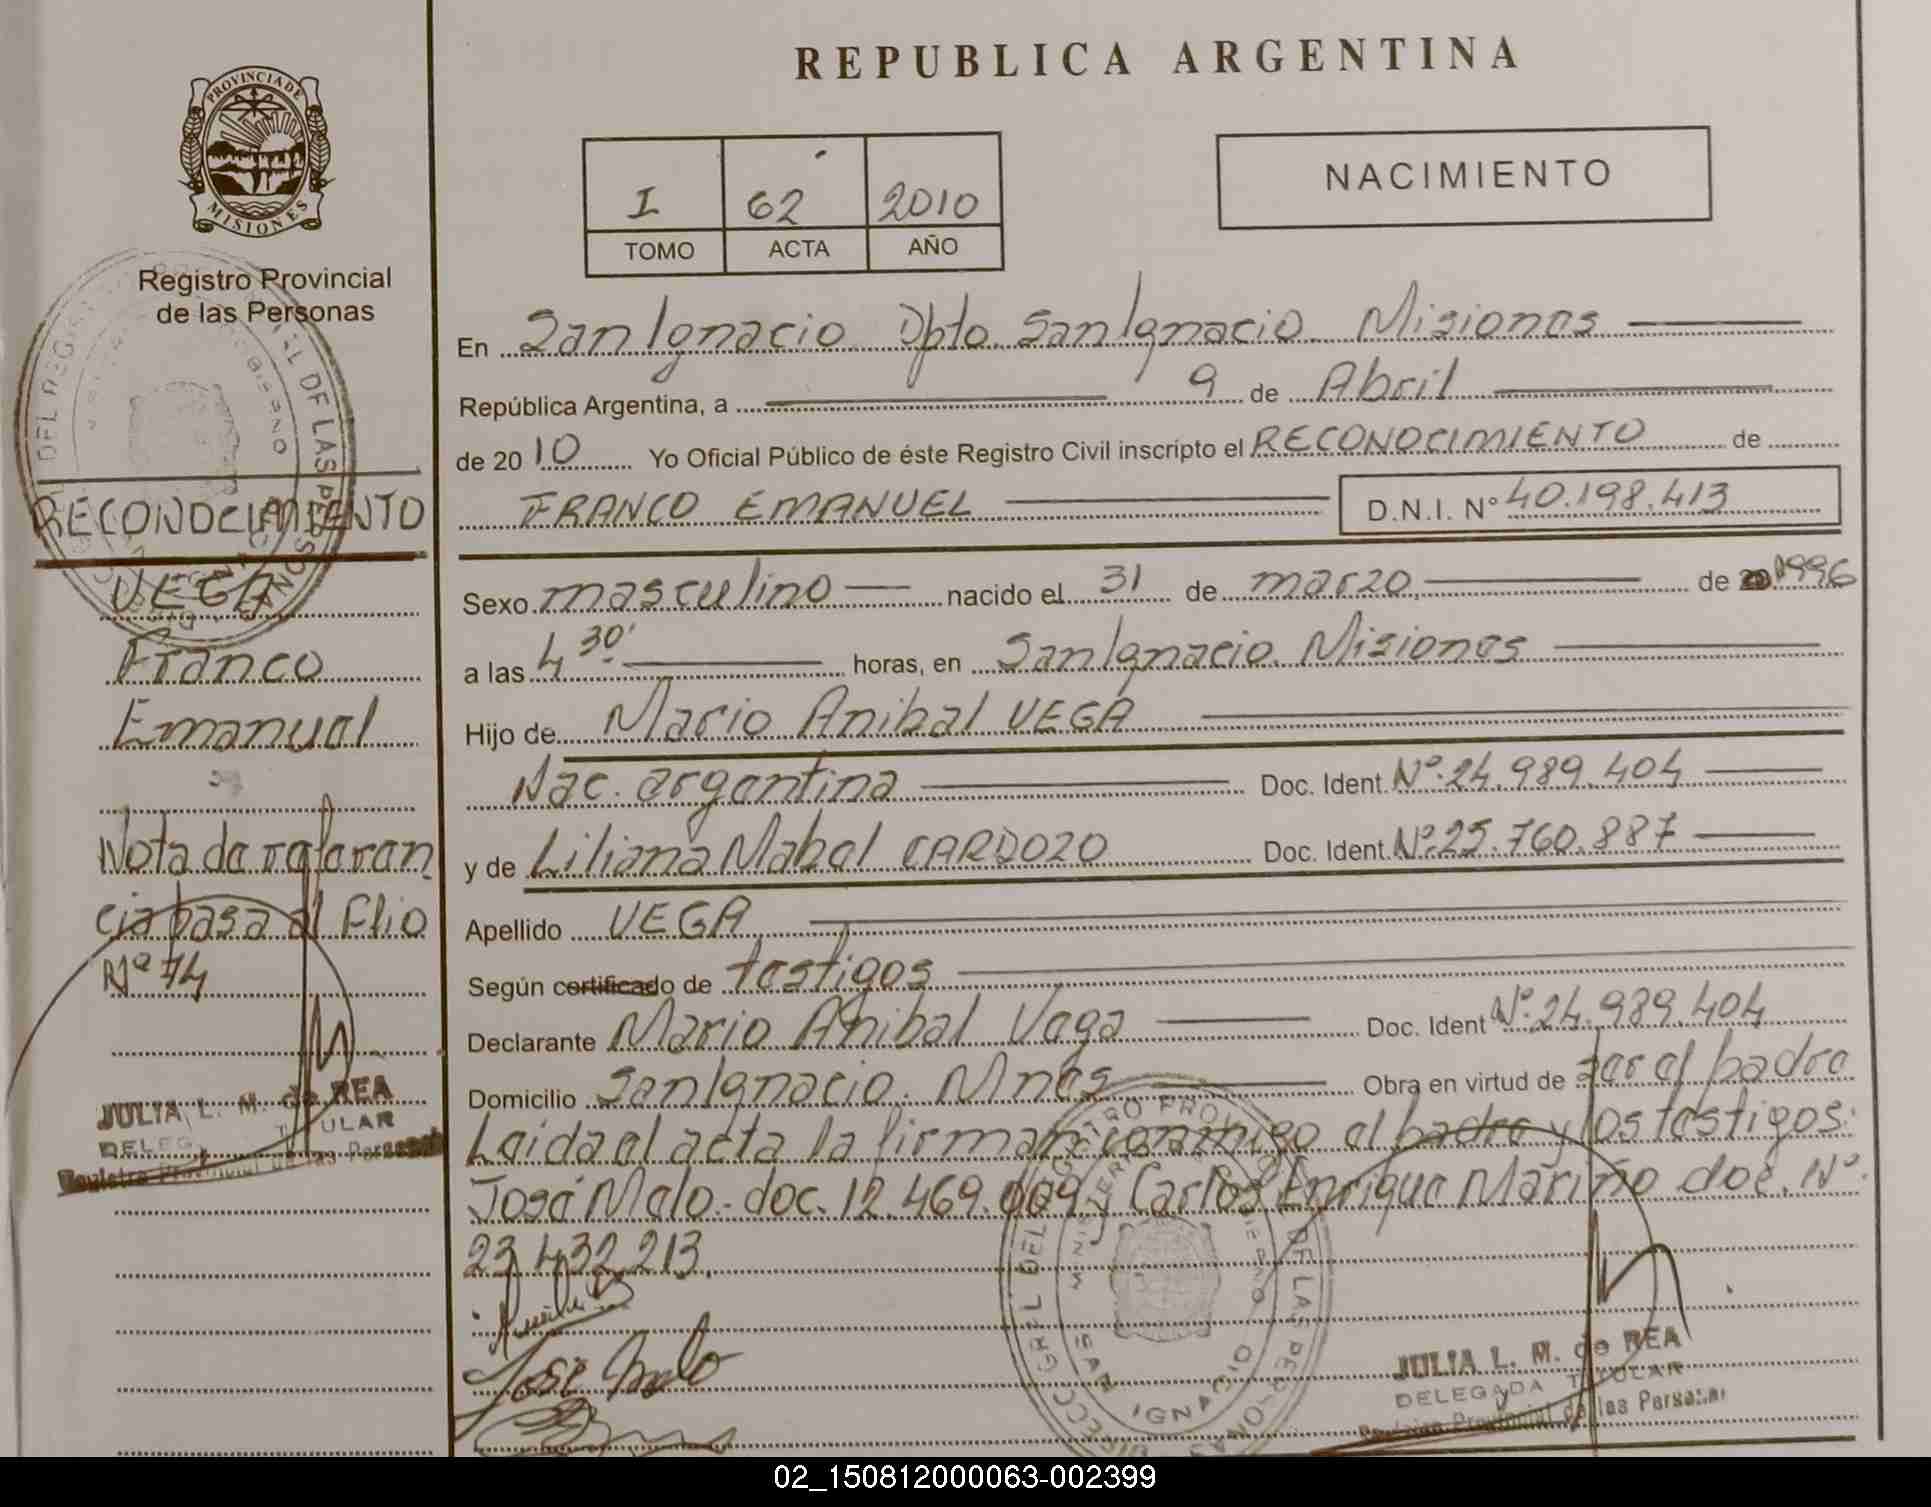 PROVINCIA DE
MISIONES
Registro Provincial
de las Personas
RECONOCIMIENTO
VEGA
Franco
Emanuel
Nota de referen
cia pasa al Flio
Nº 74
JULIA L. M. de REA
DELEG TITULAR
Registro Provincial de las Personas
REPUBLICA ARGENTINA
I 62 2010
TOMO ACTA AÑO
NACIMIENTO
En San Ignacio Dpto. San Ignacio Misiones
República Argentina, a 9 de Abril
de 2010 Yo Oficial Público de éste Registro Civil inscripto el RECONOCIMIENTO de
FRANCO EMANUEL D.N.I. Nº 40.198.413
Sexo masculino nacido el 31 de marzo, de 1996
a las 4 30' horas, en San Ignacio Misiones
Hijo de Mario Anibal VEGA
Nac. argentina Doc. Ident. Nº 24.989.404
y de Liliana Mabel CARDOZO Doc. Ident. Nº 25.760.887
Apellido VEGA
Según certificado de testigos
Declarante Mario Anibal Vega Doc. Ident Nº 24.989.404
Domicilio San Ignacio. Mnes Obra en virtud de ser el padre
Leida el acta la firman conmigo el padre y los testigos:
José Melo.- doc. 12.469.009 y Carlos Enrique Mariño doc. Nº
23.432.213.
José Melo
SAN IGNACIO
JULIA L. M. de REA
DELEGADA TITULAR
Registro Provincial de las Personas
02_150812000063-002399